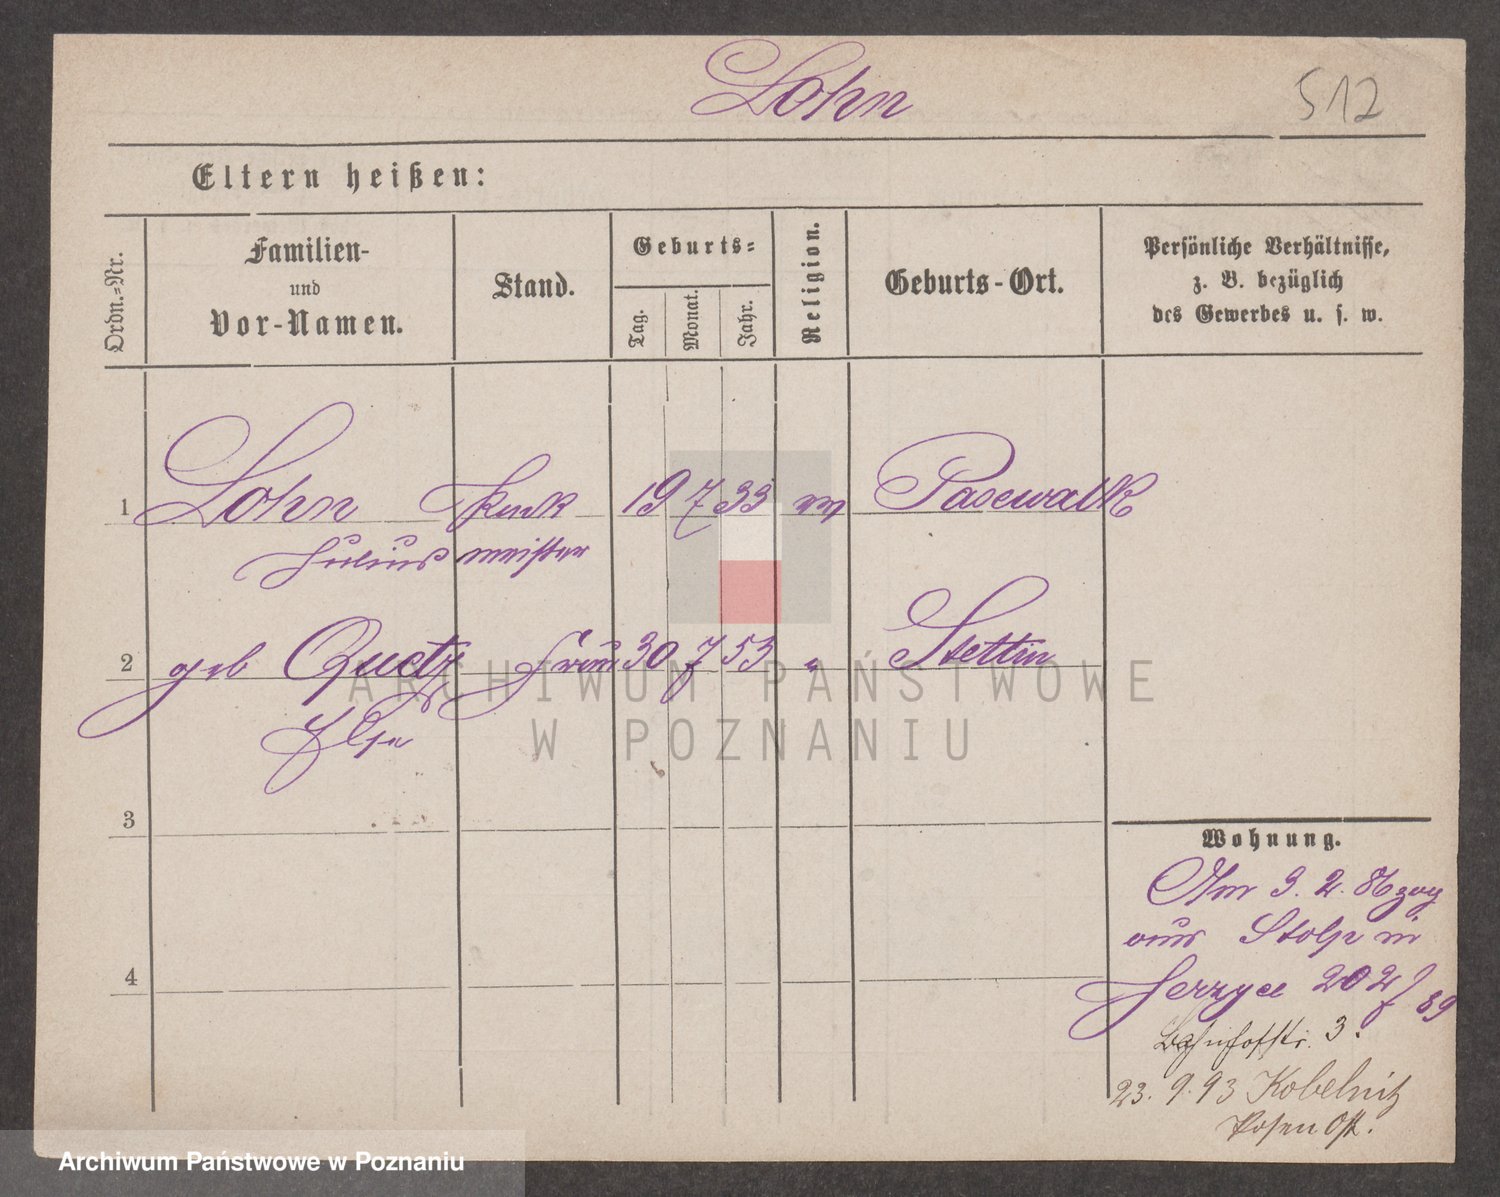 Lohn
512
Eltern heißen:
Ordn.-Nr.
Familien-
und
Vor-Namen.
Stand.
Geburts-
Tag.
Monat.
Jahr.
Religion.
Geburts-Ort.
Persönliche Verhältnisse,
z. B. bezüglich
des Gewerbes u. s. w.
1 Lohn 19 7 33 Pasewalk
Julius meister
2 geb Quetz Frau 30 7 53 " Stettin
3
4
Wohnung.
Am 3. 2. zog
aus Stolp in
Jerzyce 202 f 89
Bahnhofstr. 3.
23. 9. 93 Kobelnitz
Posen Ost.
ARCHIWUM PAŃSTWOWE
W POZNANIU
Archiwum Państwowe w Poznaniu